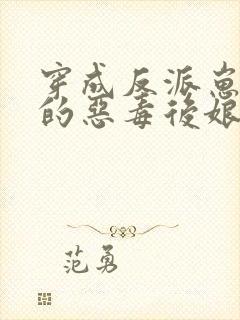 穿成反派崽
的惡毒後娘
范勇